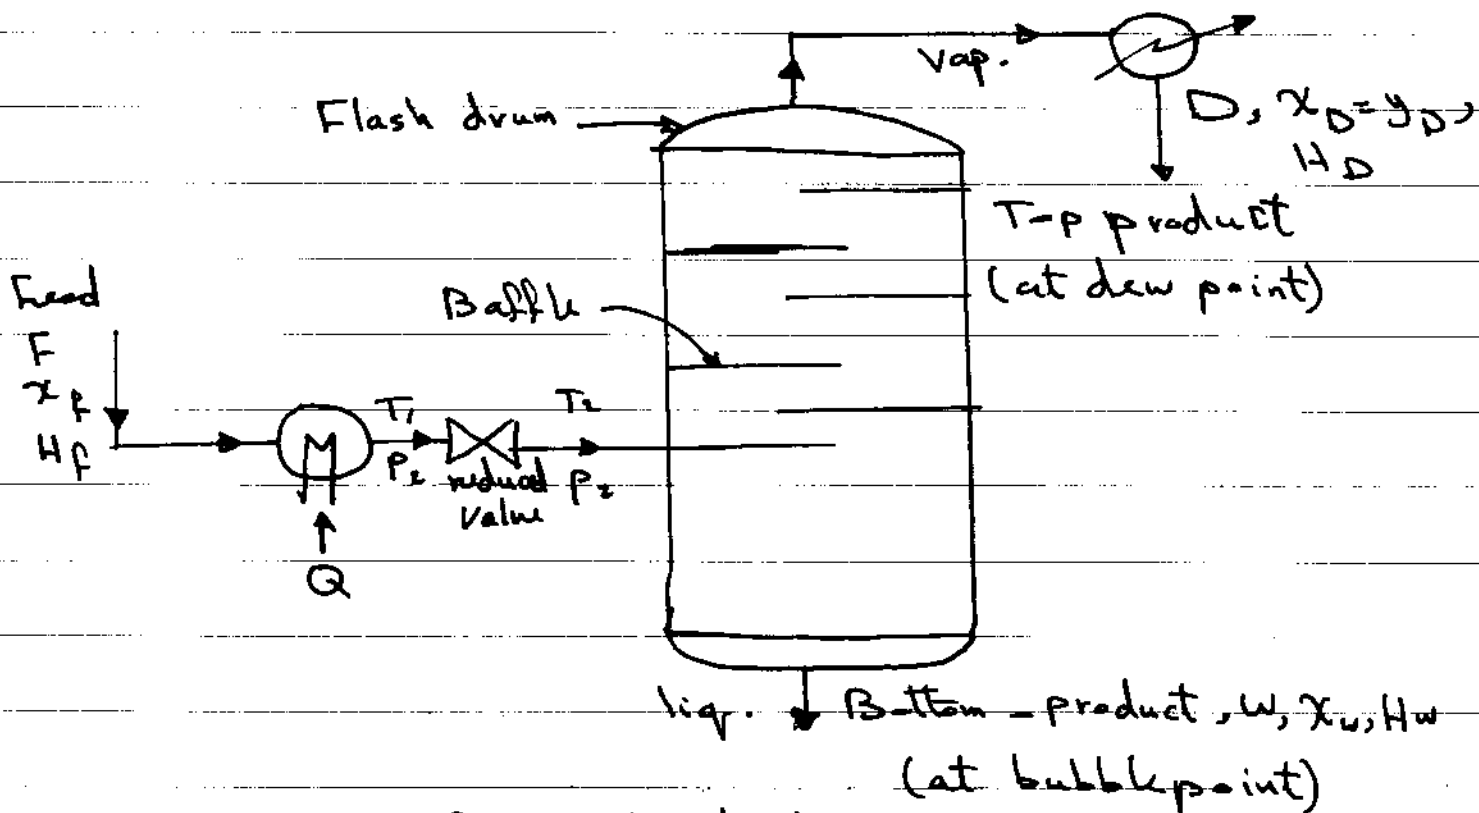 Vap.
Flash drum
D, x_D = y_D,
H_D
T-p product
(at dew point)
Feed
F
x_f
H_f
Baffle
T₁
P₁
reduced
valve
T₂
P₂
Q
liq.
Bottom - product, W, x_w, H_w
(at bubble point)